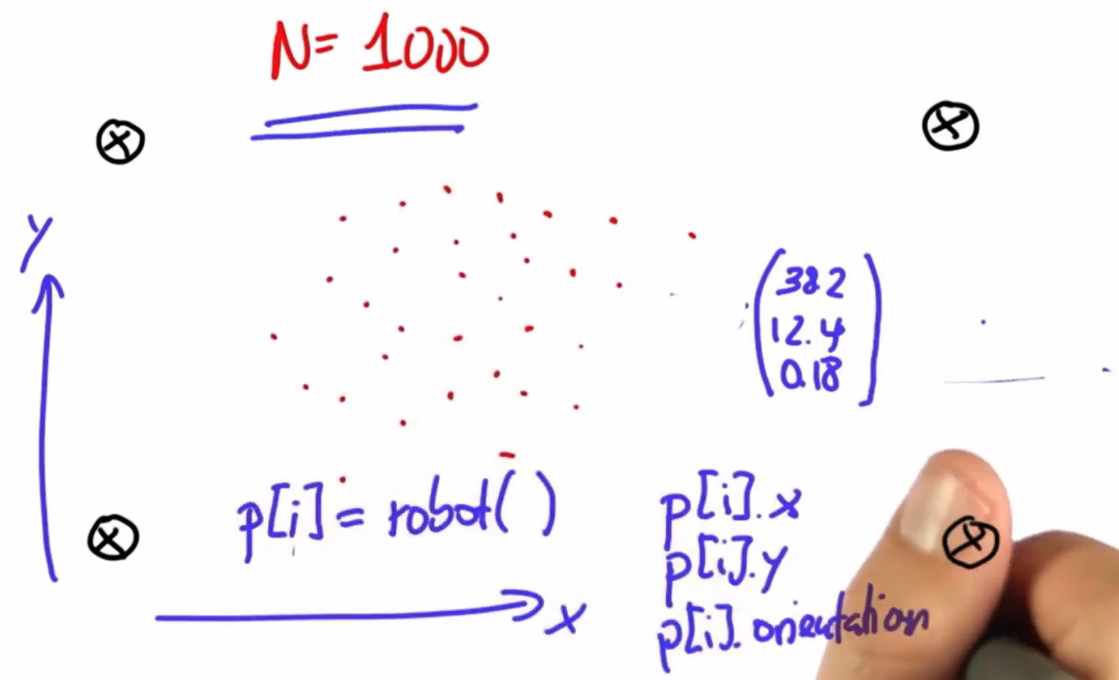 N= 1000
y
(38.2
12.4
0.18)
p[i] = robot( )
p[i].x
p[i].y
p[i].orientation
x